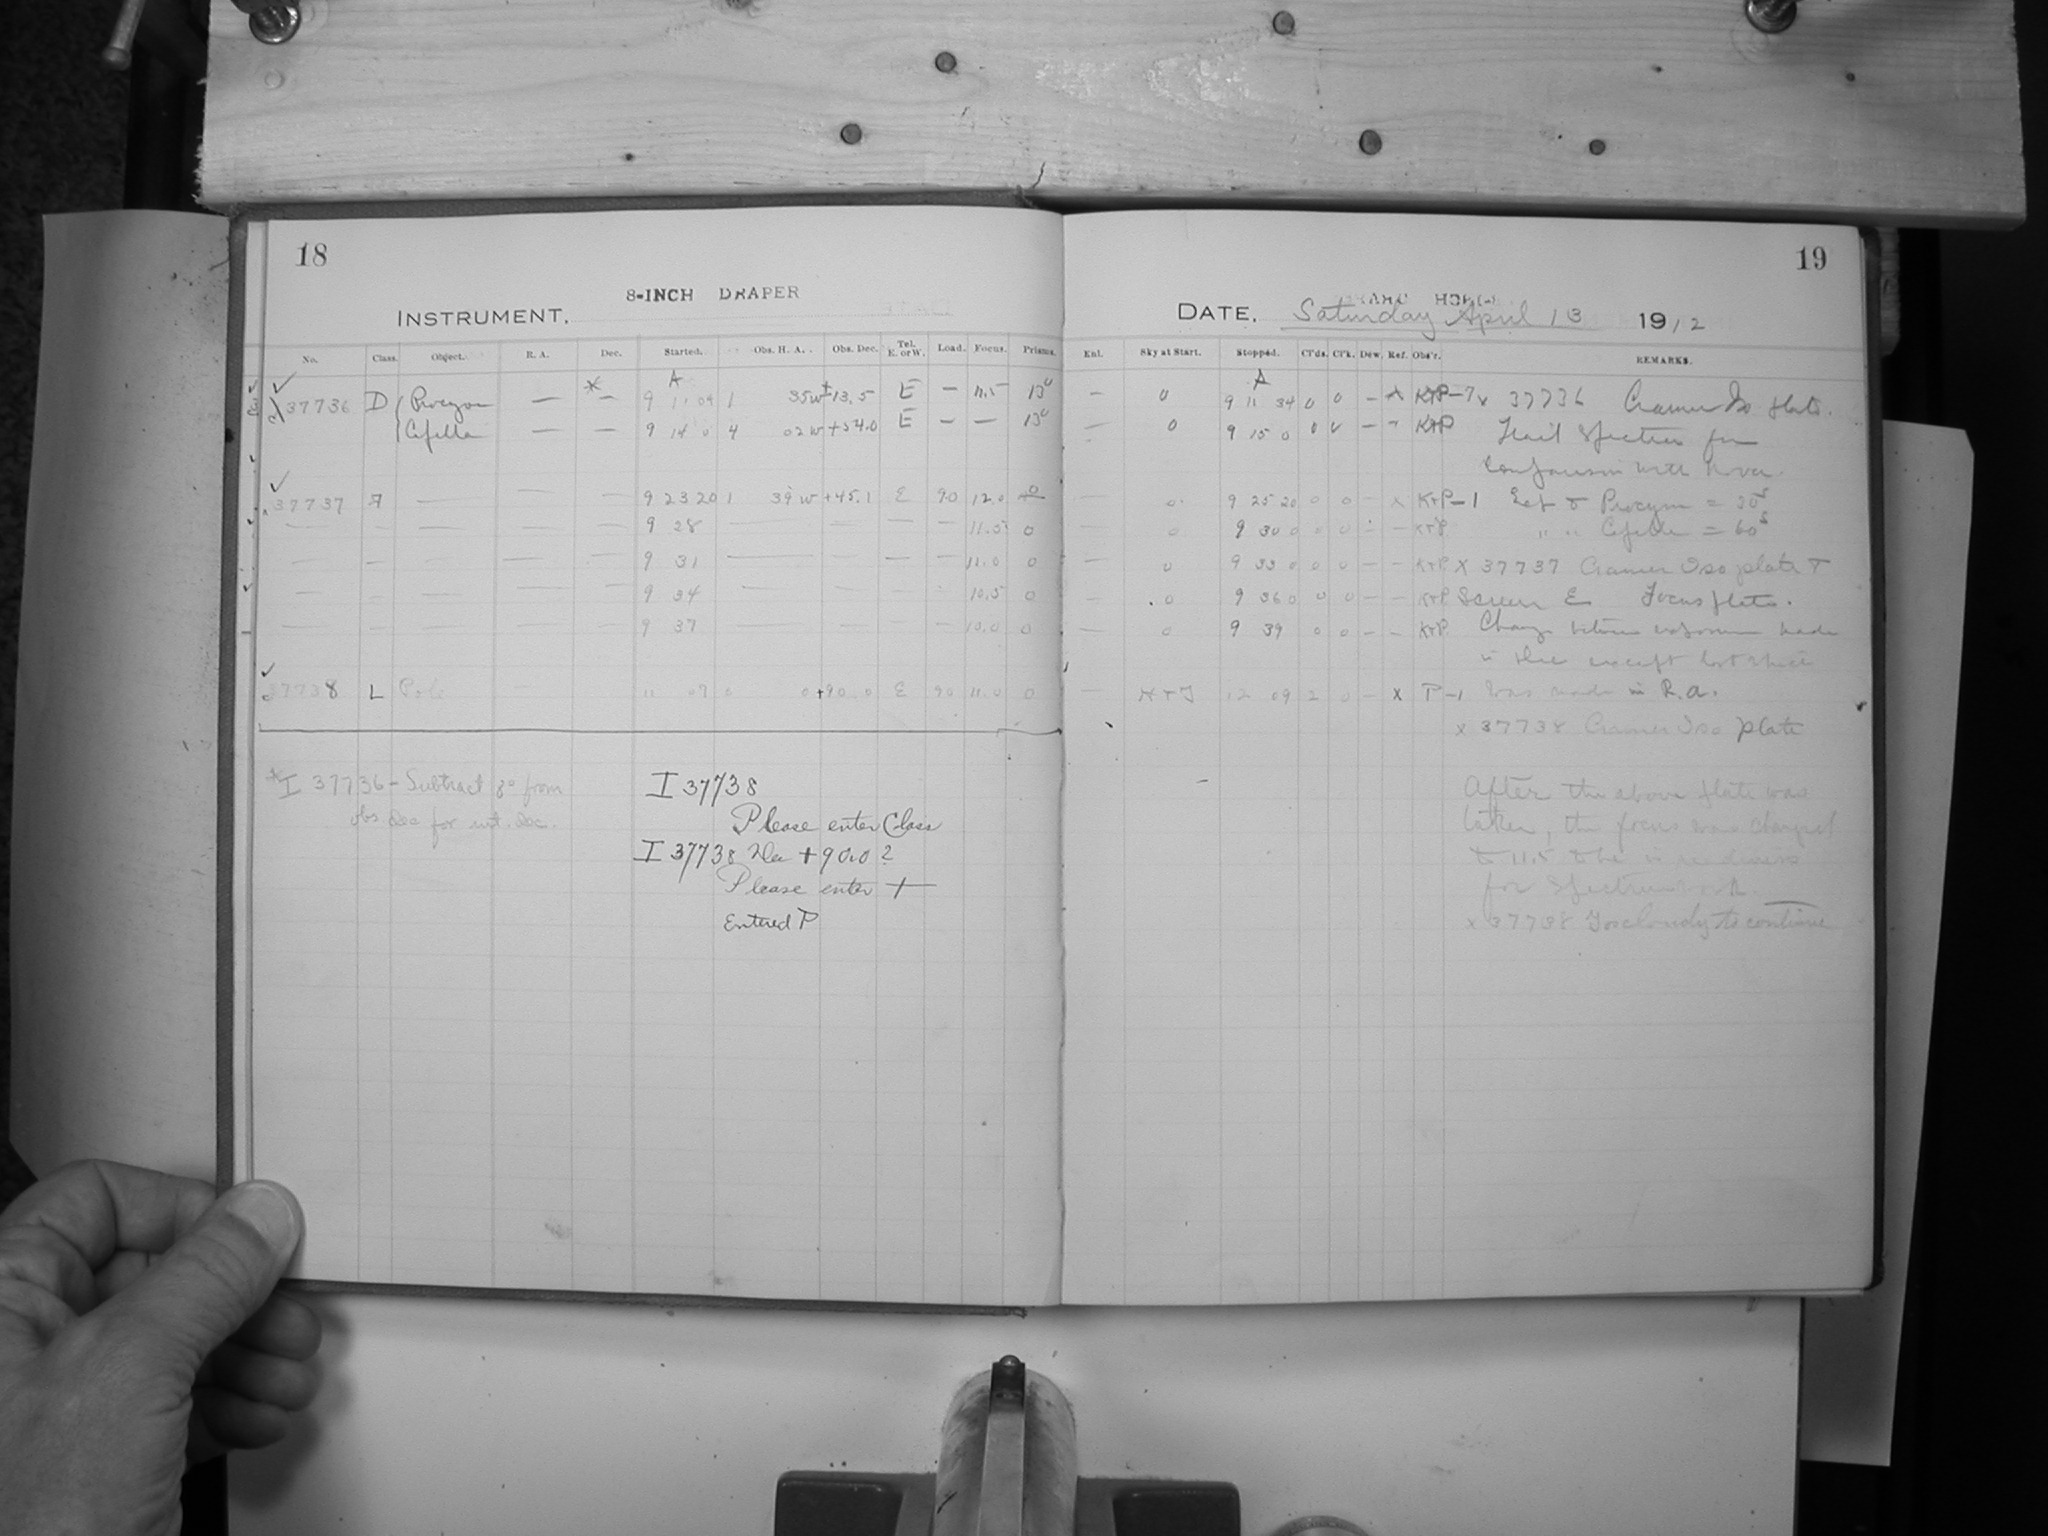 18
8-INCH DRAPER
INSTRUMENT.
No. Class. Object. R. A. Dec. Started. Obs. H. A. Obs. Dec. Tel. E. or W. Load. Focus. Prisms.
A
37736 D Procyon — * — 9 11 04 1 35 W +13.5 E — 11.5 13°
Capella — — 9 14 0 4 02 W +54.0 E — — 13°
37737 — — — 9 23 20 1 39 W +45.1 E 90 12.0 0
— — — — — 9 28 — — — — 11.5 0
— — — — — 9 31 — — — — 11.0 0
— — — — — 9 34 — — — — 10.5 0
— — — — — 9 37 — — — — 10.0 0
37738 L Pole — 11 07 0 0 +90.0 E 90 11.0 0
* I 37736 - Subtract 8° from
obs. Dec for int. Dec.
I 37738
Please enter Class
I 37738 Dec +90.0?
Please enter +
Entered P
19
DATE. Saturday April 13 1912
Enl. Sky at Start. Stopped. Cl'ds. Cl'k. Dew. Ref. Obs'r. REMARKS.
A
— 0 9 11 34 0 0 — x K+P-7 x 37736 Cramer Iso plate.
— 0 9 15 0 0 0 — - K+P Trail Spectra for
comparison with Nova.
— 0 9 25 20 0 0 x K+P-1 Exp of Procyon = 30s
0 9 30 0 0 0 - - K+P " " Capella = 60s
— 0 9 33 0 0 0 - - K+P x 37737 Cramer Iso plate +
— 0 9 36 0 0 0 - - K+P Screen E Focus plate.
— 0 9 39 0 0 - - K+P Change between exposures made
in Dec except last which
— H+J 12 09 2 0 - x P-1 was made in R.a.
x 37738 Cramer Iso plate
After the above plate was
taken, the focus was changed
to 11.5 to be in readiness
for Spectrum work.
x 37738 Too cloudy to continue